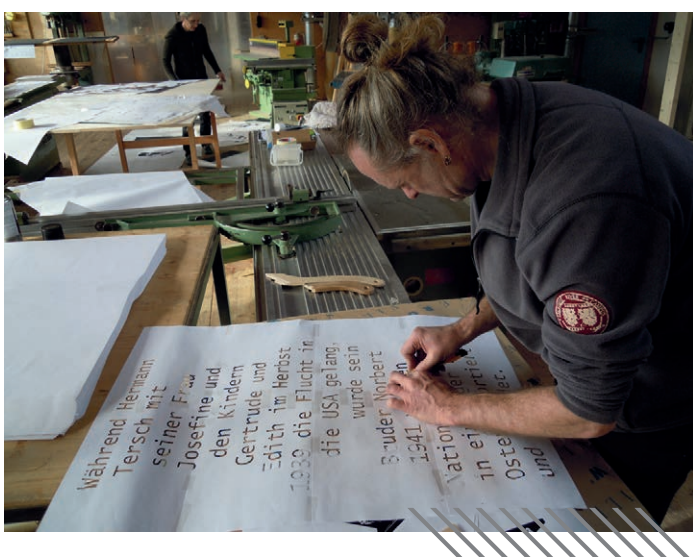 Während Hermann
Tersch mit
seiner Frau
Josefine und
den Kindern
Gertrude und
Edith im Herbst
1939 die Flucht in
die USA gelang,
wurde sein
Bruder Norbert
1941
in
und